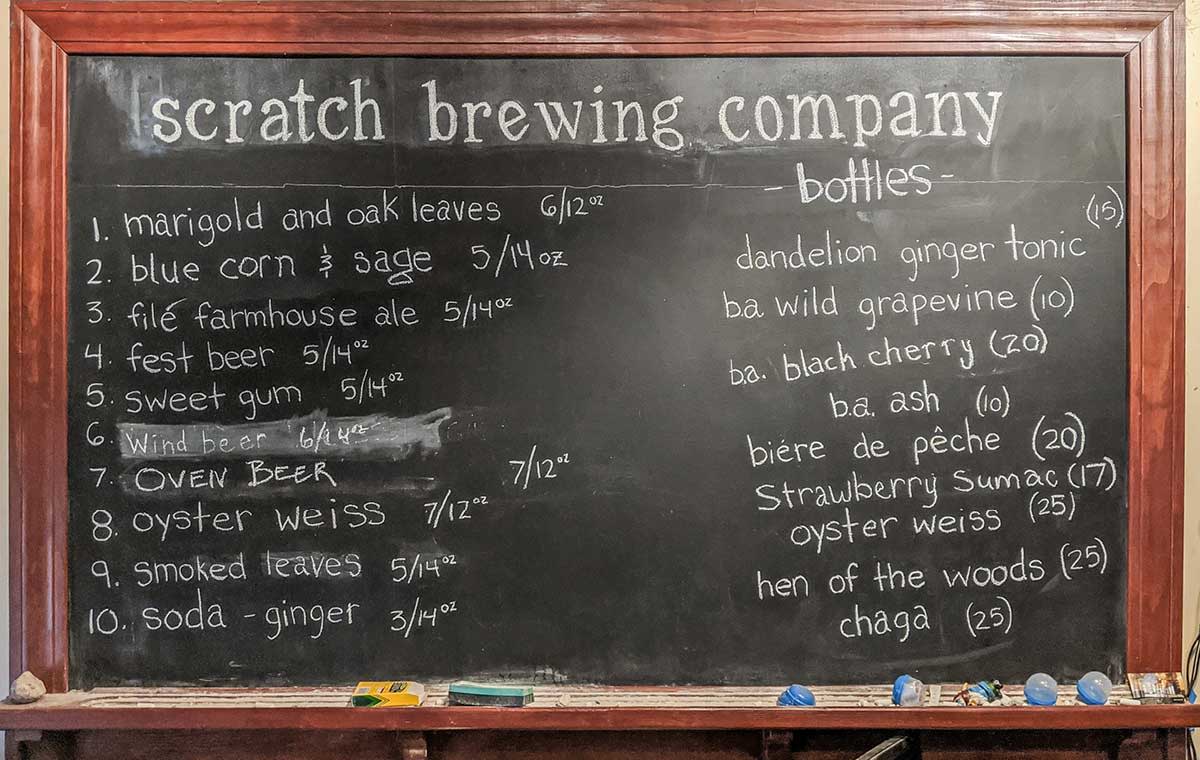 scratch brewing company
1. marigold and oak leaves 6/12oz
2. blue corn & sage 5/14oz
3. filé farmhouse ale 5/14oz
4. fest beer 5/14oz
5. sweet gum 5/14oz
6. Wind beer 6/14oz
7. OVEN BEER 7/12oz
8. oyster weiss 7/12oz
9. smoked leaves 5/14oz
10. soda - ginger 3/14oz
- bottles -
(15)
dandelion ginger tonic
b.a wild grapevine (10)
b.a. black cherry (20)
b.a. ash (10)
biére de pêche (20)
Strawberry Sumac (17)
oyster weiss (25)
hen of the woods (25)
chaga (25)